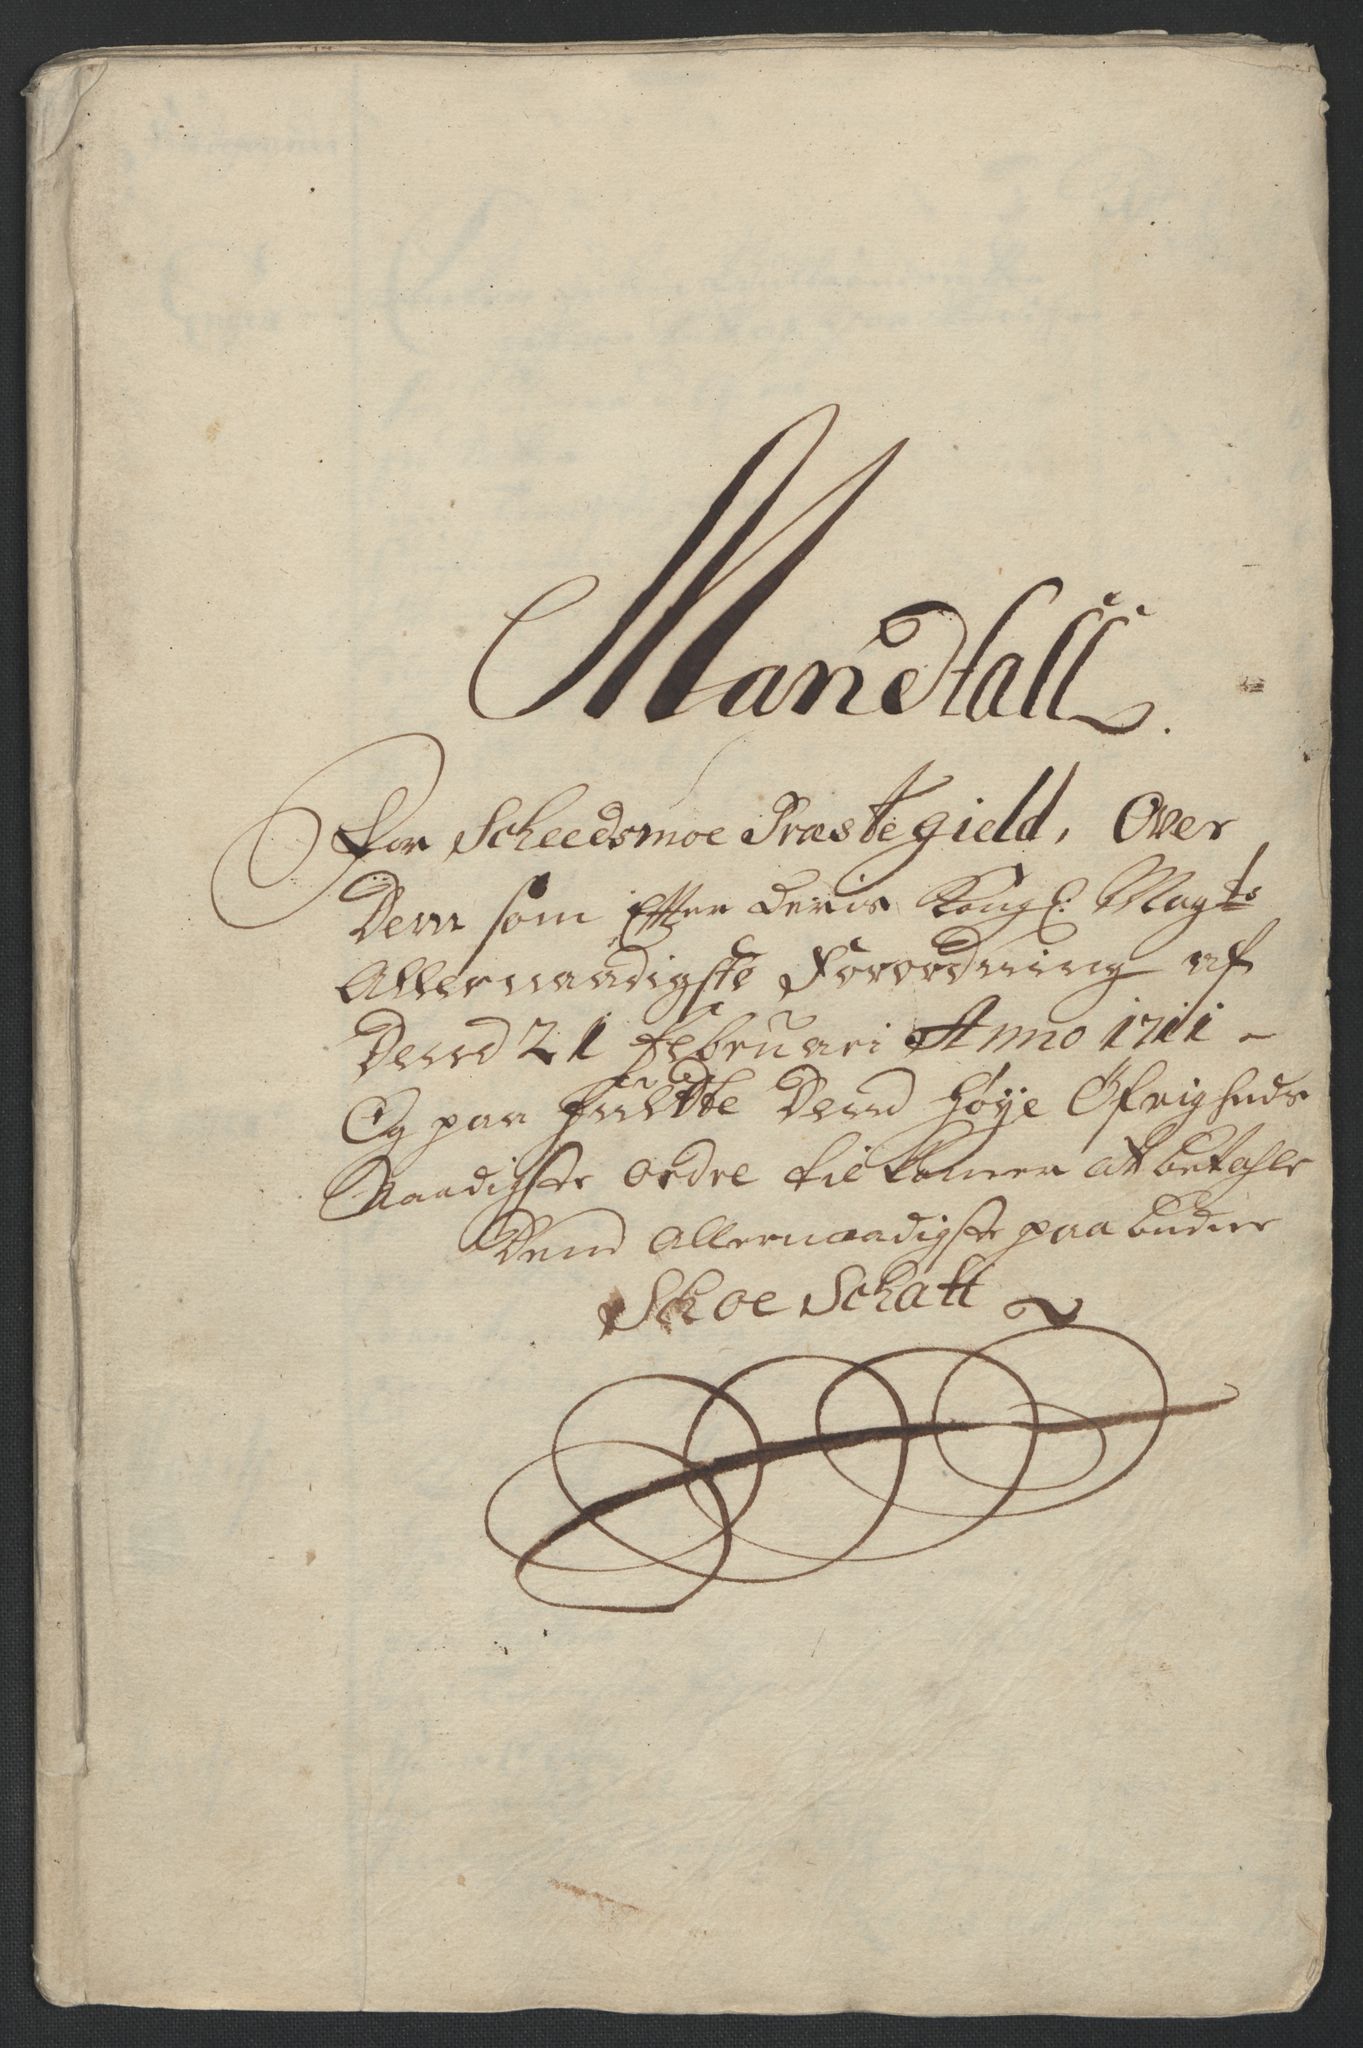 Mandtall.
For Scheedsmoe Præstegield, Over
Dem som Efter Deris Kongl: Mayts
Allernaadigste Forordning af
Dend 21 Februari Anno 1711 -
Og paa fuldte Dend høye Øfrigheds
Naadigste Ordre tilkommer at betahle
Dend Allernaadigste paabudne
Skoe Schatt